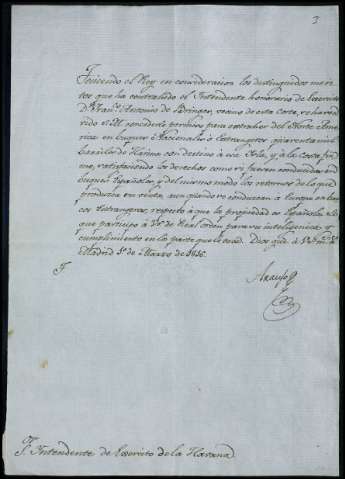 3
Teniendo el Rey en consideracion los distinguidos meri-
tos que ha contrahido el Intendente honorario de Exercito
Dn. Franco. Antonio de Bringas, vecino de esta Corte, se ha ser-
vido S.M. concederle permiso para extraher del Norte Ame-
rica en buques Nacionales ó Extrangeros quarenta mil
barriles de Harina con destino á esa Isla, y á la Costa
satisfaciendo los derechos como si fueran conducidas en
buques Españoles, y del mismo modo los retornos de lo que
produzca su venta, aun quando se conduzcan a Europa en bar-
cos Extrangeros, respecto á que la propiedad es Española. Lo
que participo á V.S. de Real orden para su inteligencia y
cumplimiento en la parte que le toca. Dios gue. á V.S. ms. as.
Madrid 1º de Marzo de 1816.
Araujo
Sr. Intendente de Exercito de la Havana